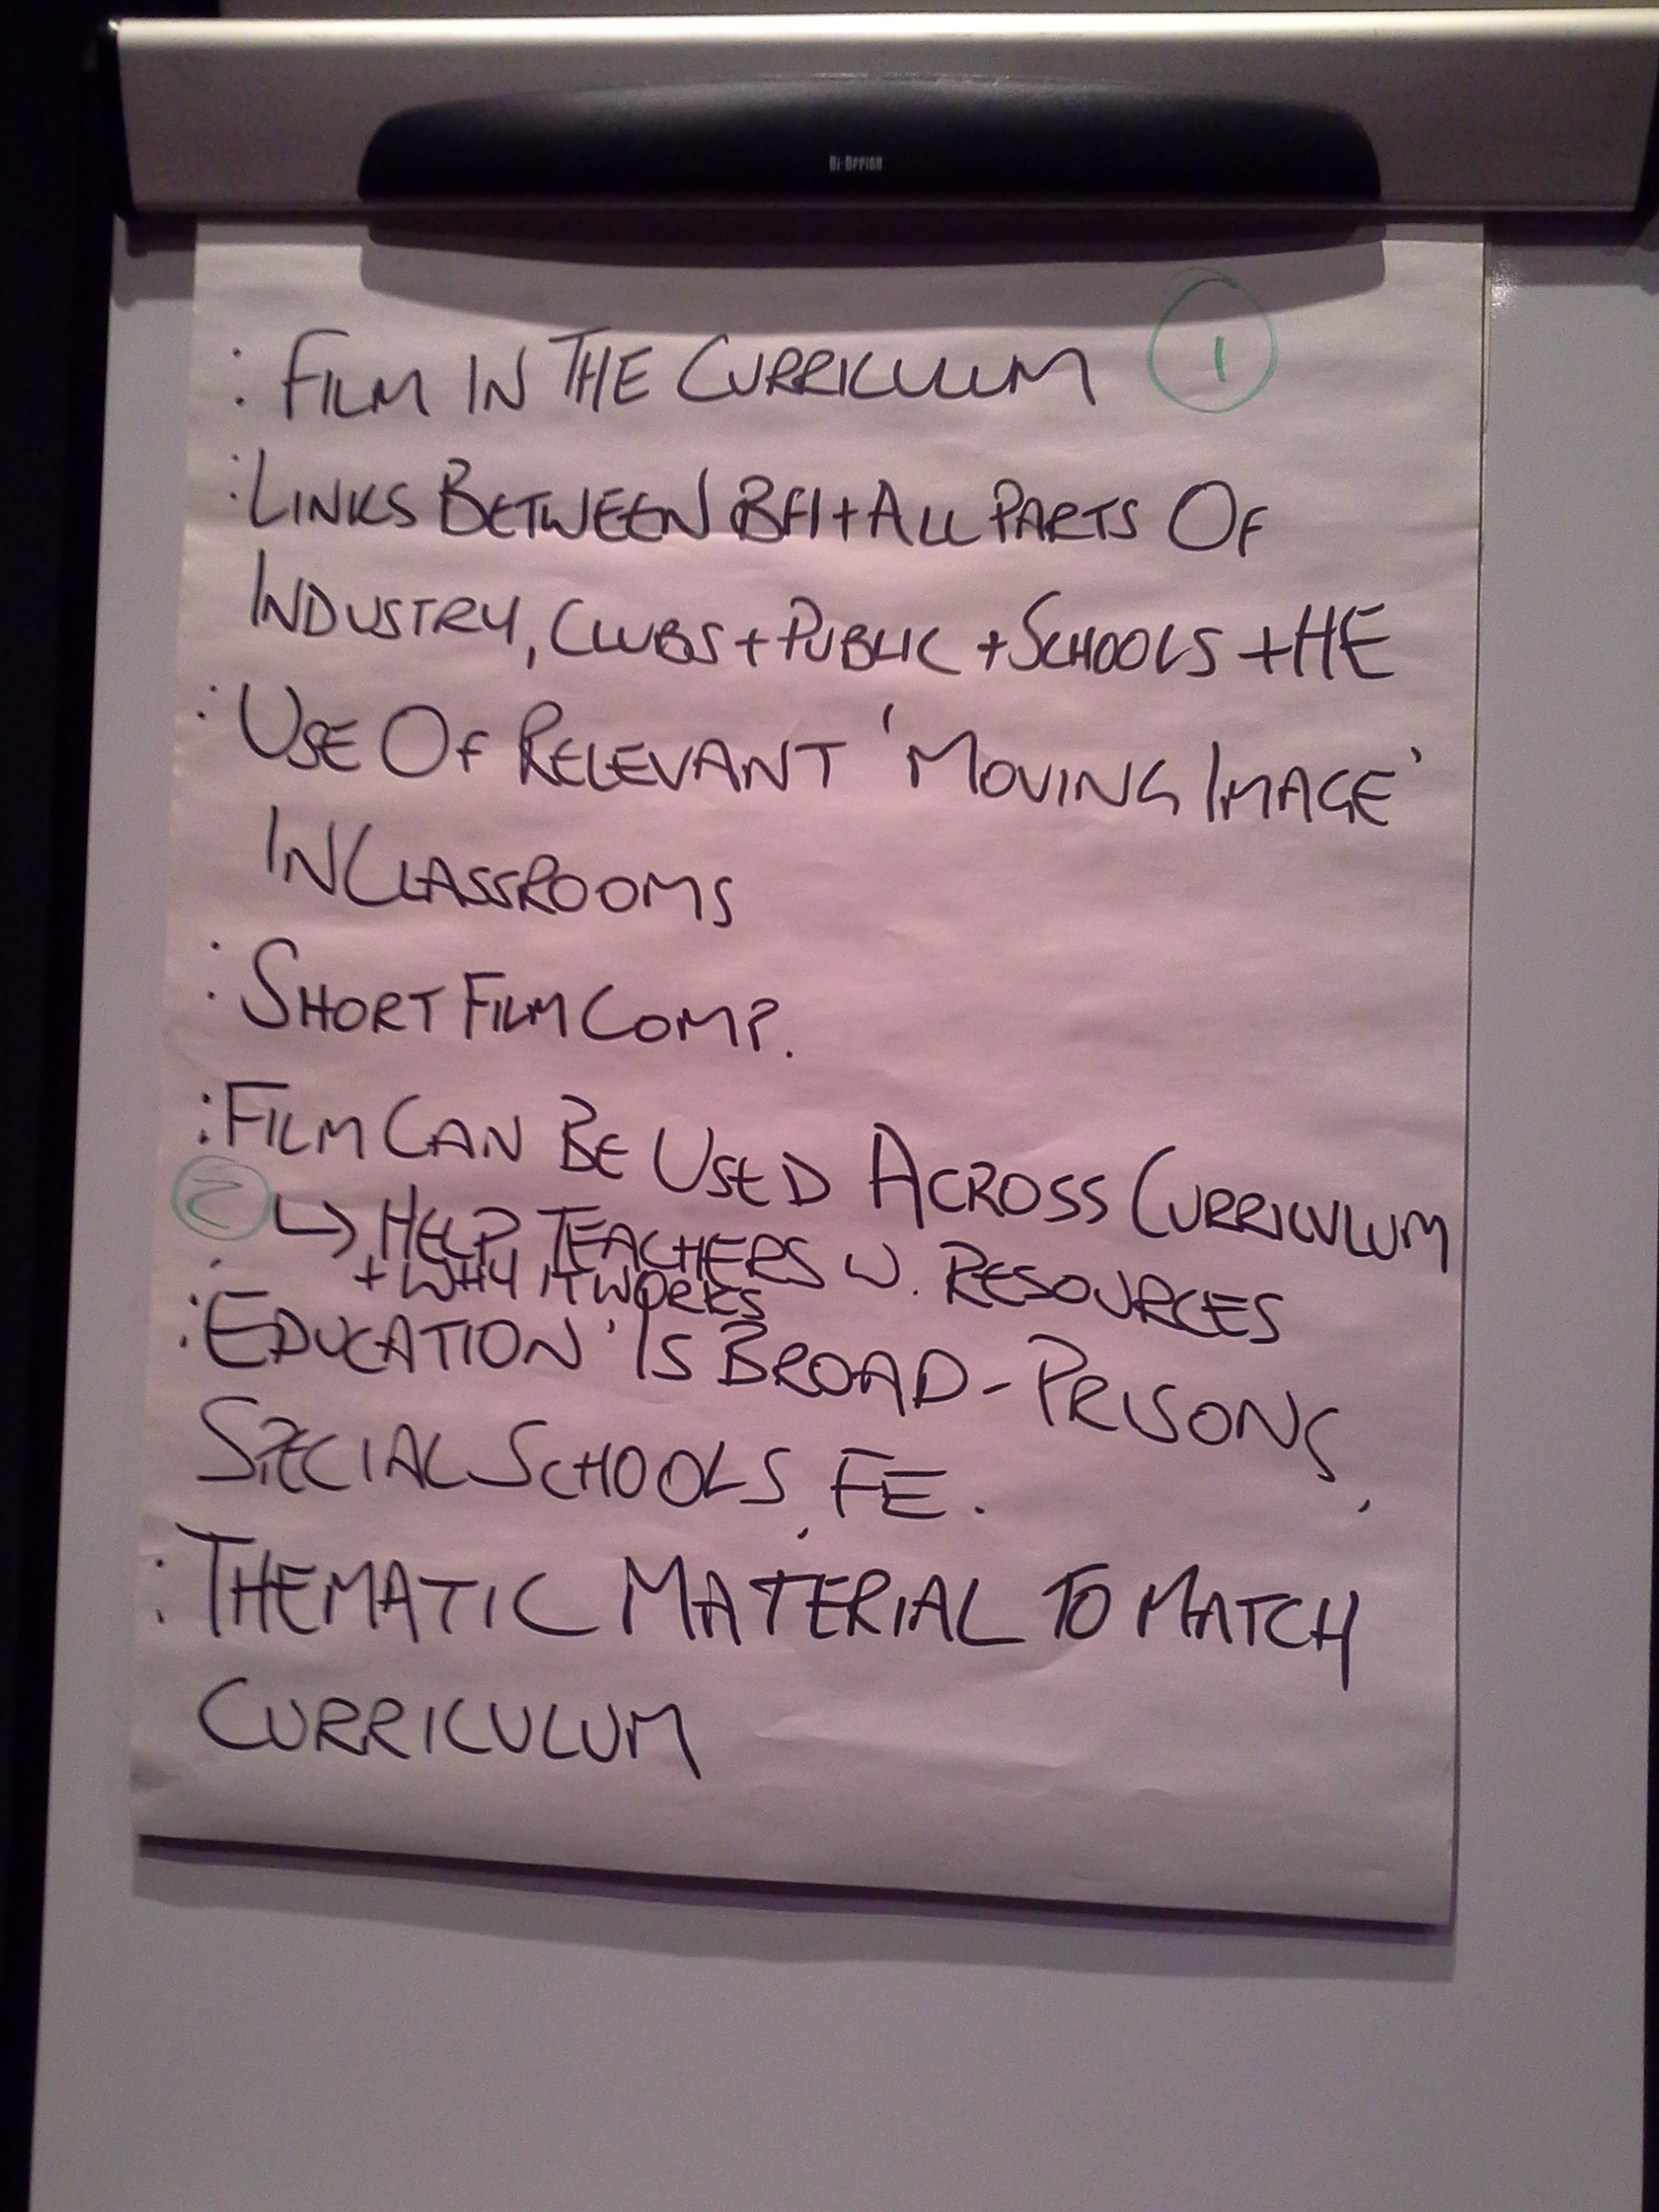 Bi-Office
: FILM IN THE CURRICULUM 1
: LINKS BETWEEN BFI + ALL PARTS OF
INDUSTRY, CLUBS + PUBLIC + SCHOOLS + HE
: USE OF RELEVANT 'MOVING IMAGE'
IN CLASSROOMS
: SHORT FILM COMP.
: FILM CAN BE USED ACROSS CURRICULUM
2 ↳ HELP TEACHERS W. RESOURCES
+ WHY IT WORKS
: 'EDUCATION' IS BROAD - PRISONS,
SPECIAL SCHOOLS, FE.
: THEMATIC MATERIAL TO MATCH
CURRICULUM